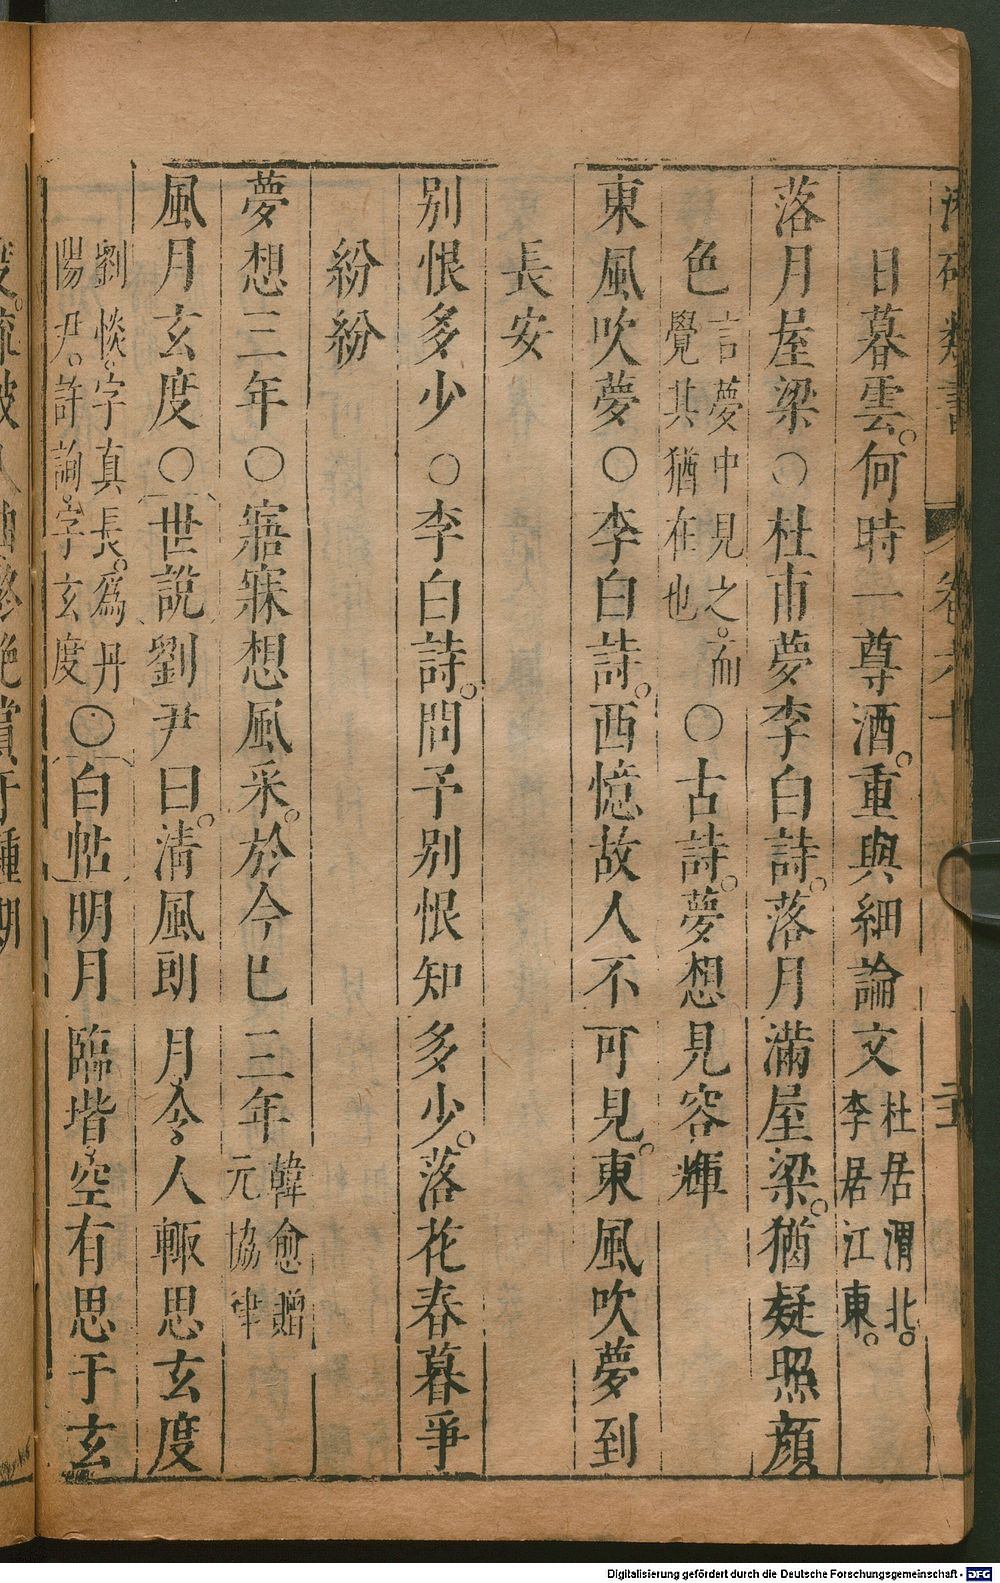 類書
日暮雲。何時一尊酒。重與細論文杜居渭北。李居江東。
落月屋梁○杜甫夢李白詩。落月滿屋梁。猶疑照顏
色言夢中見之。而覺其猶在也○古詩。夢想見容輝
東風吹夢○李白詩。西憶故人不可見。東風吹夢到
長安
別恨多少○李白詩。問予別恨知多少。落花春暮爭
紛紛
夢想三年○寤寐想風采。於今已三年韓愈贈元協律
風月玄度○世說劉尹曰。清風朗月。令人輙思玄度
劉惔。字真長。爲丹陽尹。許詢。字玄度○白帖明月臨堦。空有思于玄
Digitalisierung gefördert durch die Deutsche Forschungsgemeinschaft - DFG